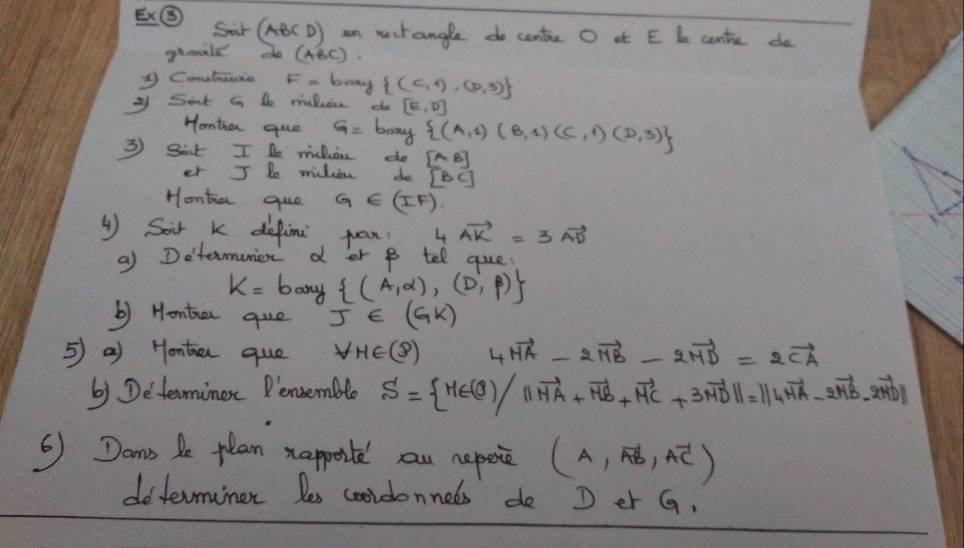 Ex ③
Soit (ABCD) un rectangle de centre O et E le centre de
gravité de (ABC).
1) Construire F = bary {(C,1), (D,3)}
2) Soit G le milieu de [E,D]
Montrer que G = bary {(A,1) (B,1) (C,1) (D,3)}
3) Soit I le milieu de [AB]
et J le milieu de [BC]
Montrer que G ∈ (IF).
4) Soit K défini par: 4 \overrightarrow{AK} = 3 \overrightarrow{AD}
a) Déterminer α et β tel que:
K = bary {(A,α), (D, β)}
b) Montrer que J ∈ (GK)
5) a) Montrer que ∀M∈(P) 4\overrightarrow{MA} - 2\overrightarrow{MB} - 2\overrightarrow{MD} = 2\overrightarrow{CA}
b) Déterminer l'ensemble S = {M∈(P) / ||\overrightarrow{MA} + \overrightarrow{MB} + \overrightarrow{MC} + 3\overrightarrow{MD}|| = ||4\overrightarrow{MA} - 2\overrightarrow{MB} - 2\overrightarrow{MD}||
6) Dans le plan rapporté au repère (A, \overrightarrow{AB}, \overrightarrow{AC})
déterminer les coordonneés de D et G.